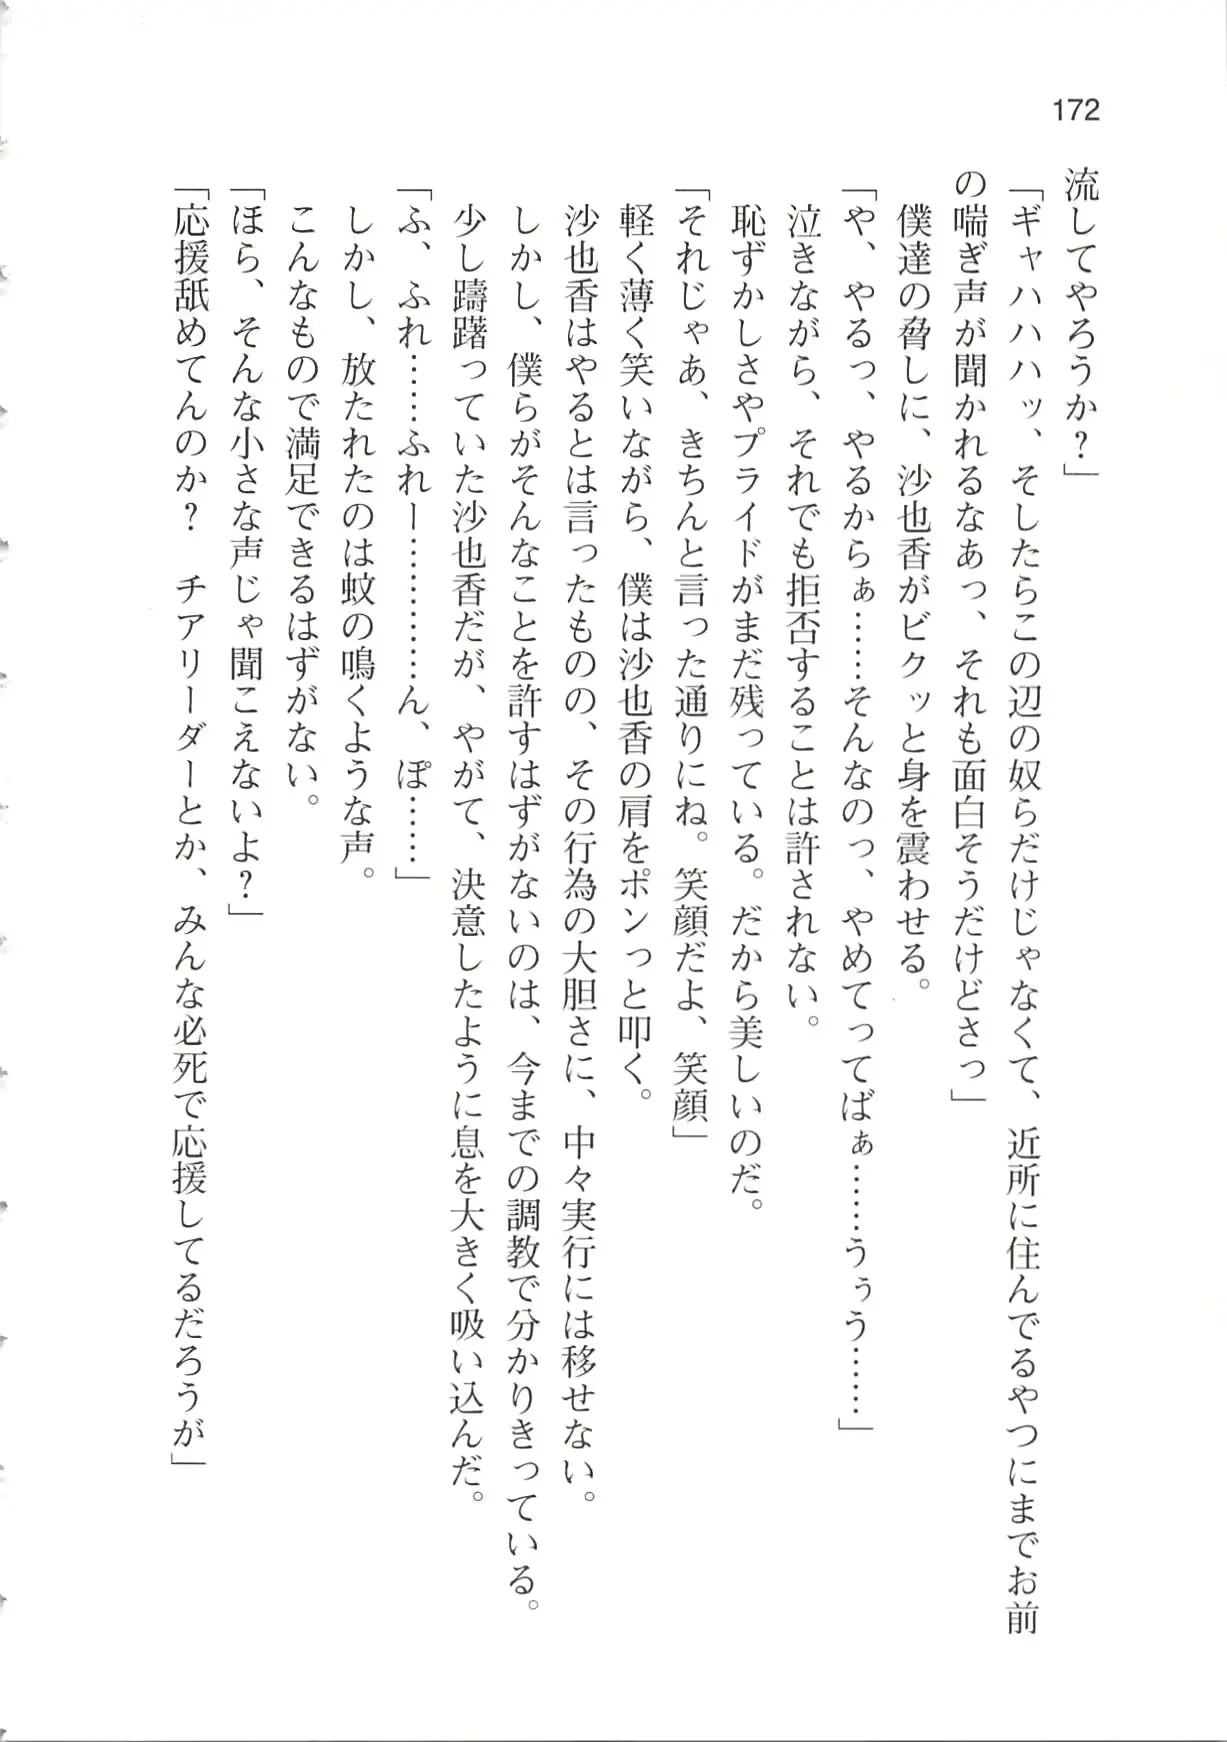 172
流してやろうか？」
「ギャハハハッ、そしたらこの辺の奴らだけじゃなくて、近所に住んでるやつにまでお前
の喘ぎ声が聞かれるなあっ、それも面白そうだけどさっ」
僕達の脅しに、沙也香がビクッと身を震わせる。
「や、やるっ、やるからぁ……そんなのっ、やめてってばぁ……うぅう……」
泣きながら、それでも拒否することは許されない。
恥ずかしさやプライドがまだ残っている。だから美しいのだ。
「それじゃあ、きちんと言った通りにね。笑顔だよ、笑顔」
軽く薄く笑いながら、僕は沙也香の肩をポンっと叩く。
沙也香はやるとは言ったものの、その行為の大胆さに、中々実行には移せない。
しかし、僕らがそんなことを許すはずがないのは、今までの調教で分かりきっている。
少し躊躇っていた沙也香だが、やがて、決意したように息を大きく吸い込んだ。
「ふ、ふれ……ふれー…………ん、ぽ……」
しかし、放たれたのは蚊の鳴くような声。
こんなもので満足できるはずがない。
「ほら、そんな小さな声じゃ聞こえないよ？」
「応援舐めてんのか？　チアリーダーとか、みんな必死で応援してるだろうが」